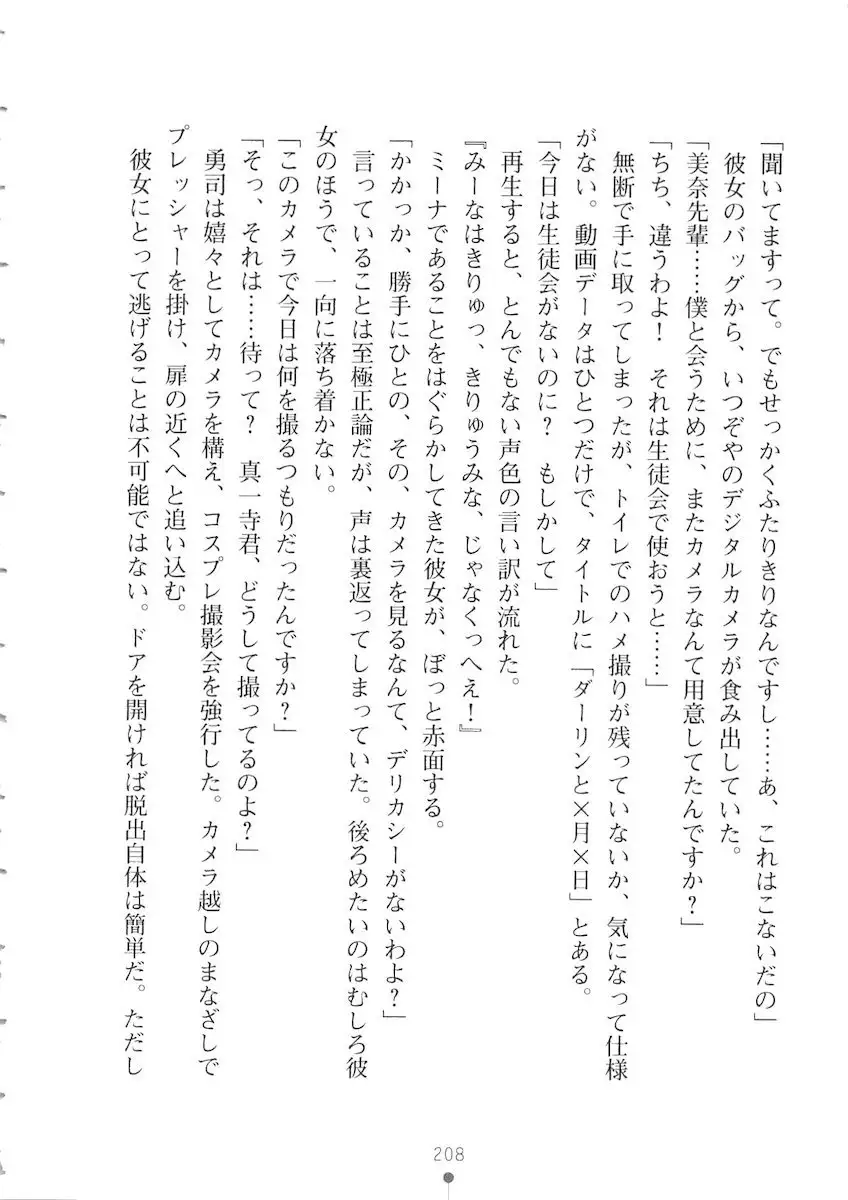 「聞いてますって。でもせっかくふたりきりなんですし……あ、これはこないだの」
彼女のバッグから、いつぞやのデジタルカメラが食み出していた。
「美奈先輩……僕と会うために、またカメラなんて用意してたんですか？」
「ちち、違うわよ！　それは生徒会で使おうと……」
無断で手に取ってしまったが、トイレでのハメ撮りが残っていないか、気になって仕様
がない。動画データはひとつだけで、タイトルに「ダーリンと×月×日」とある。
「今日は生徒会がないのに？　もしかして」
再生すると、とんでもない声色の言い訳が流れた。
『みーなはきりゅっ、きりゅうみな、じゃなくっへえ！』
ミーナであることをはぐらかしてきた彼女が、ぼっと赤面する。
「かかっか、勝手にひとの、その、カメラを見るなんて、デリカシーがないわよ？」
言っていることは至極正論だが、声は裏返ってしまっていた。後ろめたいのはむしろ彼
女のほうで、一向に落ち着かない。
「このカメラで今日は何を撮るつもりだったんですか？」
「そっ、それは……待って？　真一寺君、どうして撮ってるのよ？」
勇司は嬉々としてカメラを構え、コスプレ撮影会を強行した。カメラ越しのまなざしで
プレッシャーを掛け、扉の近くへと追い込む。
彼女にとって逃げることは不可能ではない。ドアを開ければ脱出自体は簡単だ。ただし
208